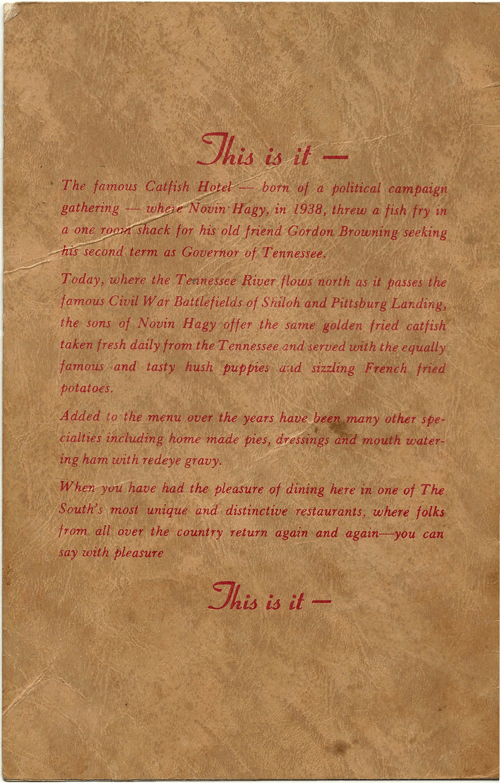 This is it —
The famous Catfish Hotel — born of a political campaign
gathering — where Novin Hagy, in 1938, threw a fish fry in
a one room shack for his old friend Gordon Browning seeking
his second term as Governor of Tennessee.
Today, where the Tennessee River flows north as it passes the
famous Civil War Battlefields of Shiloh and Pittsburg Landing,
the sons of Novin Hagy offer the same golden fried catfish
taken fresh daily from the Tennessee and served with the equally
famous and tasty hush puppies and sizzling French fried
potatoes.
Added to the menu over the years have been many other spe-
cialties including home made pies, dressings and mouth water-
ing ham with redeye gravy.
When you have had the pleasure of dining here in one of The
South's most unique and distinctive restaurants, where folks
from all over the country return again and again—you can
say with pleasure
This is it —